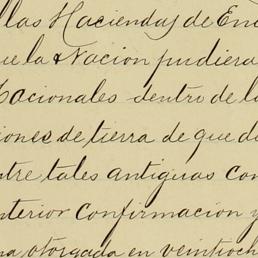 llas Haciendas de En
ue la Nación pudiera
acionales dentro de l
iones de tierra de que d
ntre tales antiguas con
nterior confirmación y
na otorgada en veintioch